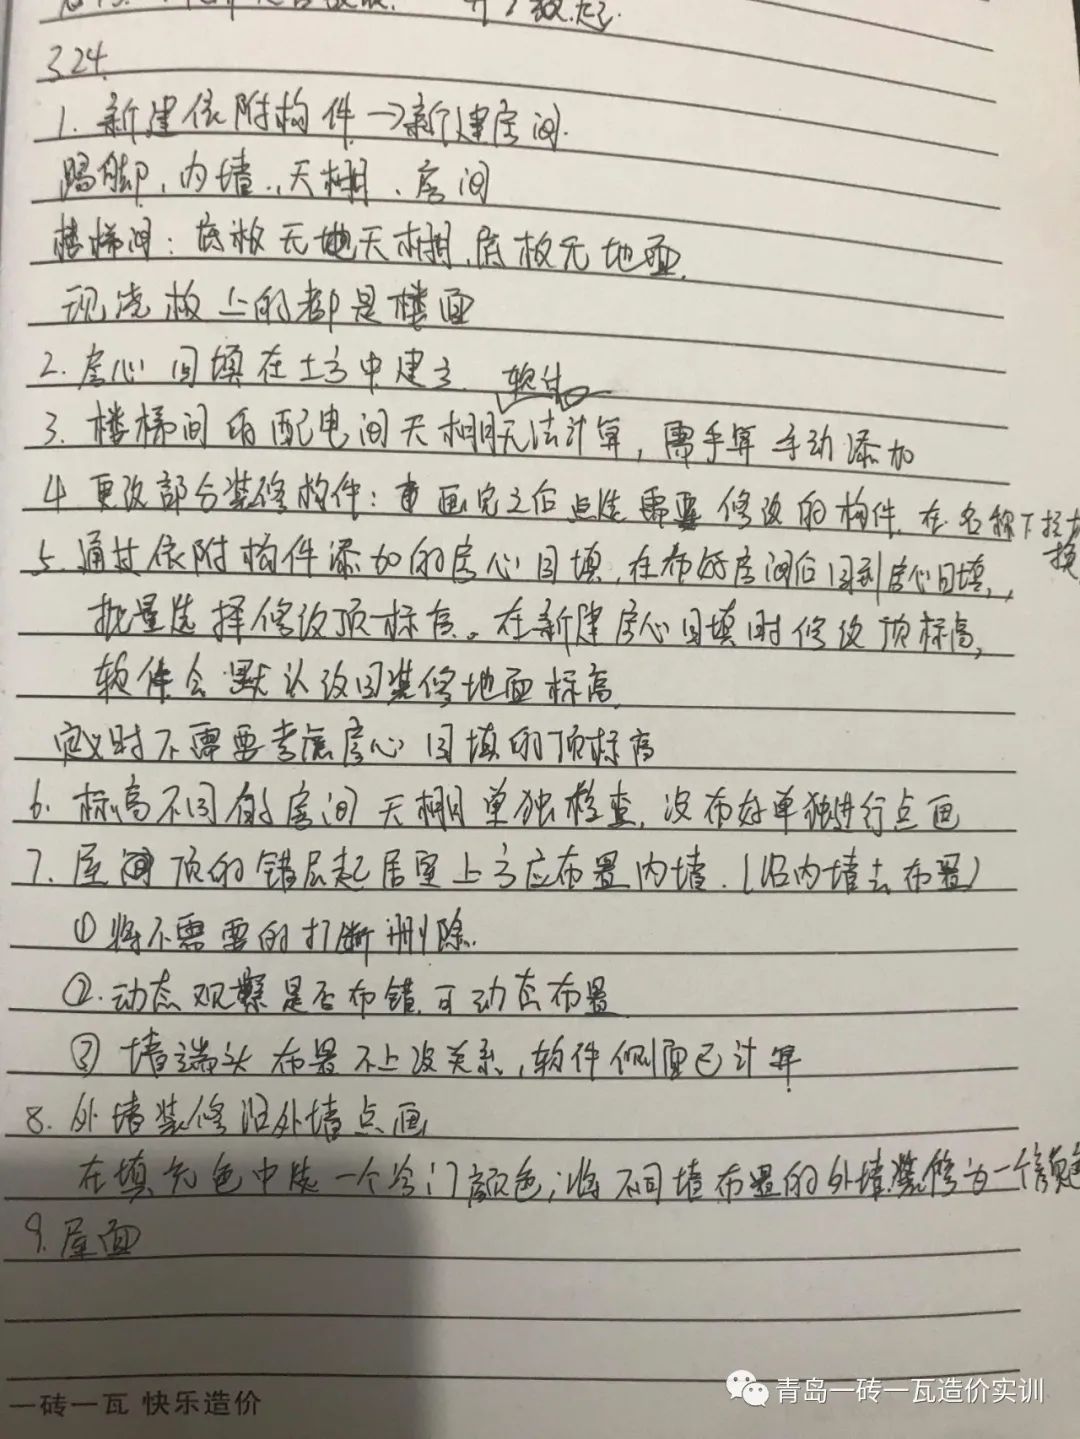 324.
1. 新建依附构件→新建房间.
踢脚、内墙、天棚、房间
楼梯间：底板无地天棚,底板无地面.
现浇板上的都是楼面
2. 房心回填在土方中建立. 软件
3. 楼梯间 配电间天棚无法计算，需手算 手动添加
4 更改部分装修构件： 画完之后 点选 需要 修改的构件. 在名称下拉
换
5. 通过依附构件添加的房心回填,在布好房间后回到房心回填,
批量选择修改顶标高。在新建房心回填时修改顶标高,
软件会默认改回装修地面标高.
定义时不需要考虑房心回填的顶标高
6. 标高不同的房间 天棚 单独检查, 没布好单独进行点画
7. 屋 顶的错层起居室上方应布置内墙.(沿内墙去布置)
①将不需要的打断删除.
②.动态观察是否布错.可动态布置
③ 墙端头布置不上没关系,软件侧面已计算
8. 外墙装修沿外墙点画
在填充色中选一个冷门颜色;将不同墙布置的外墙装修为一个颜色
9. 屋面
一砖一瓦 快乐造价
青岛一砖一瓦造价实训